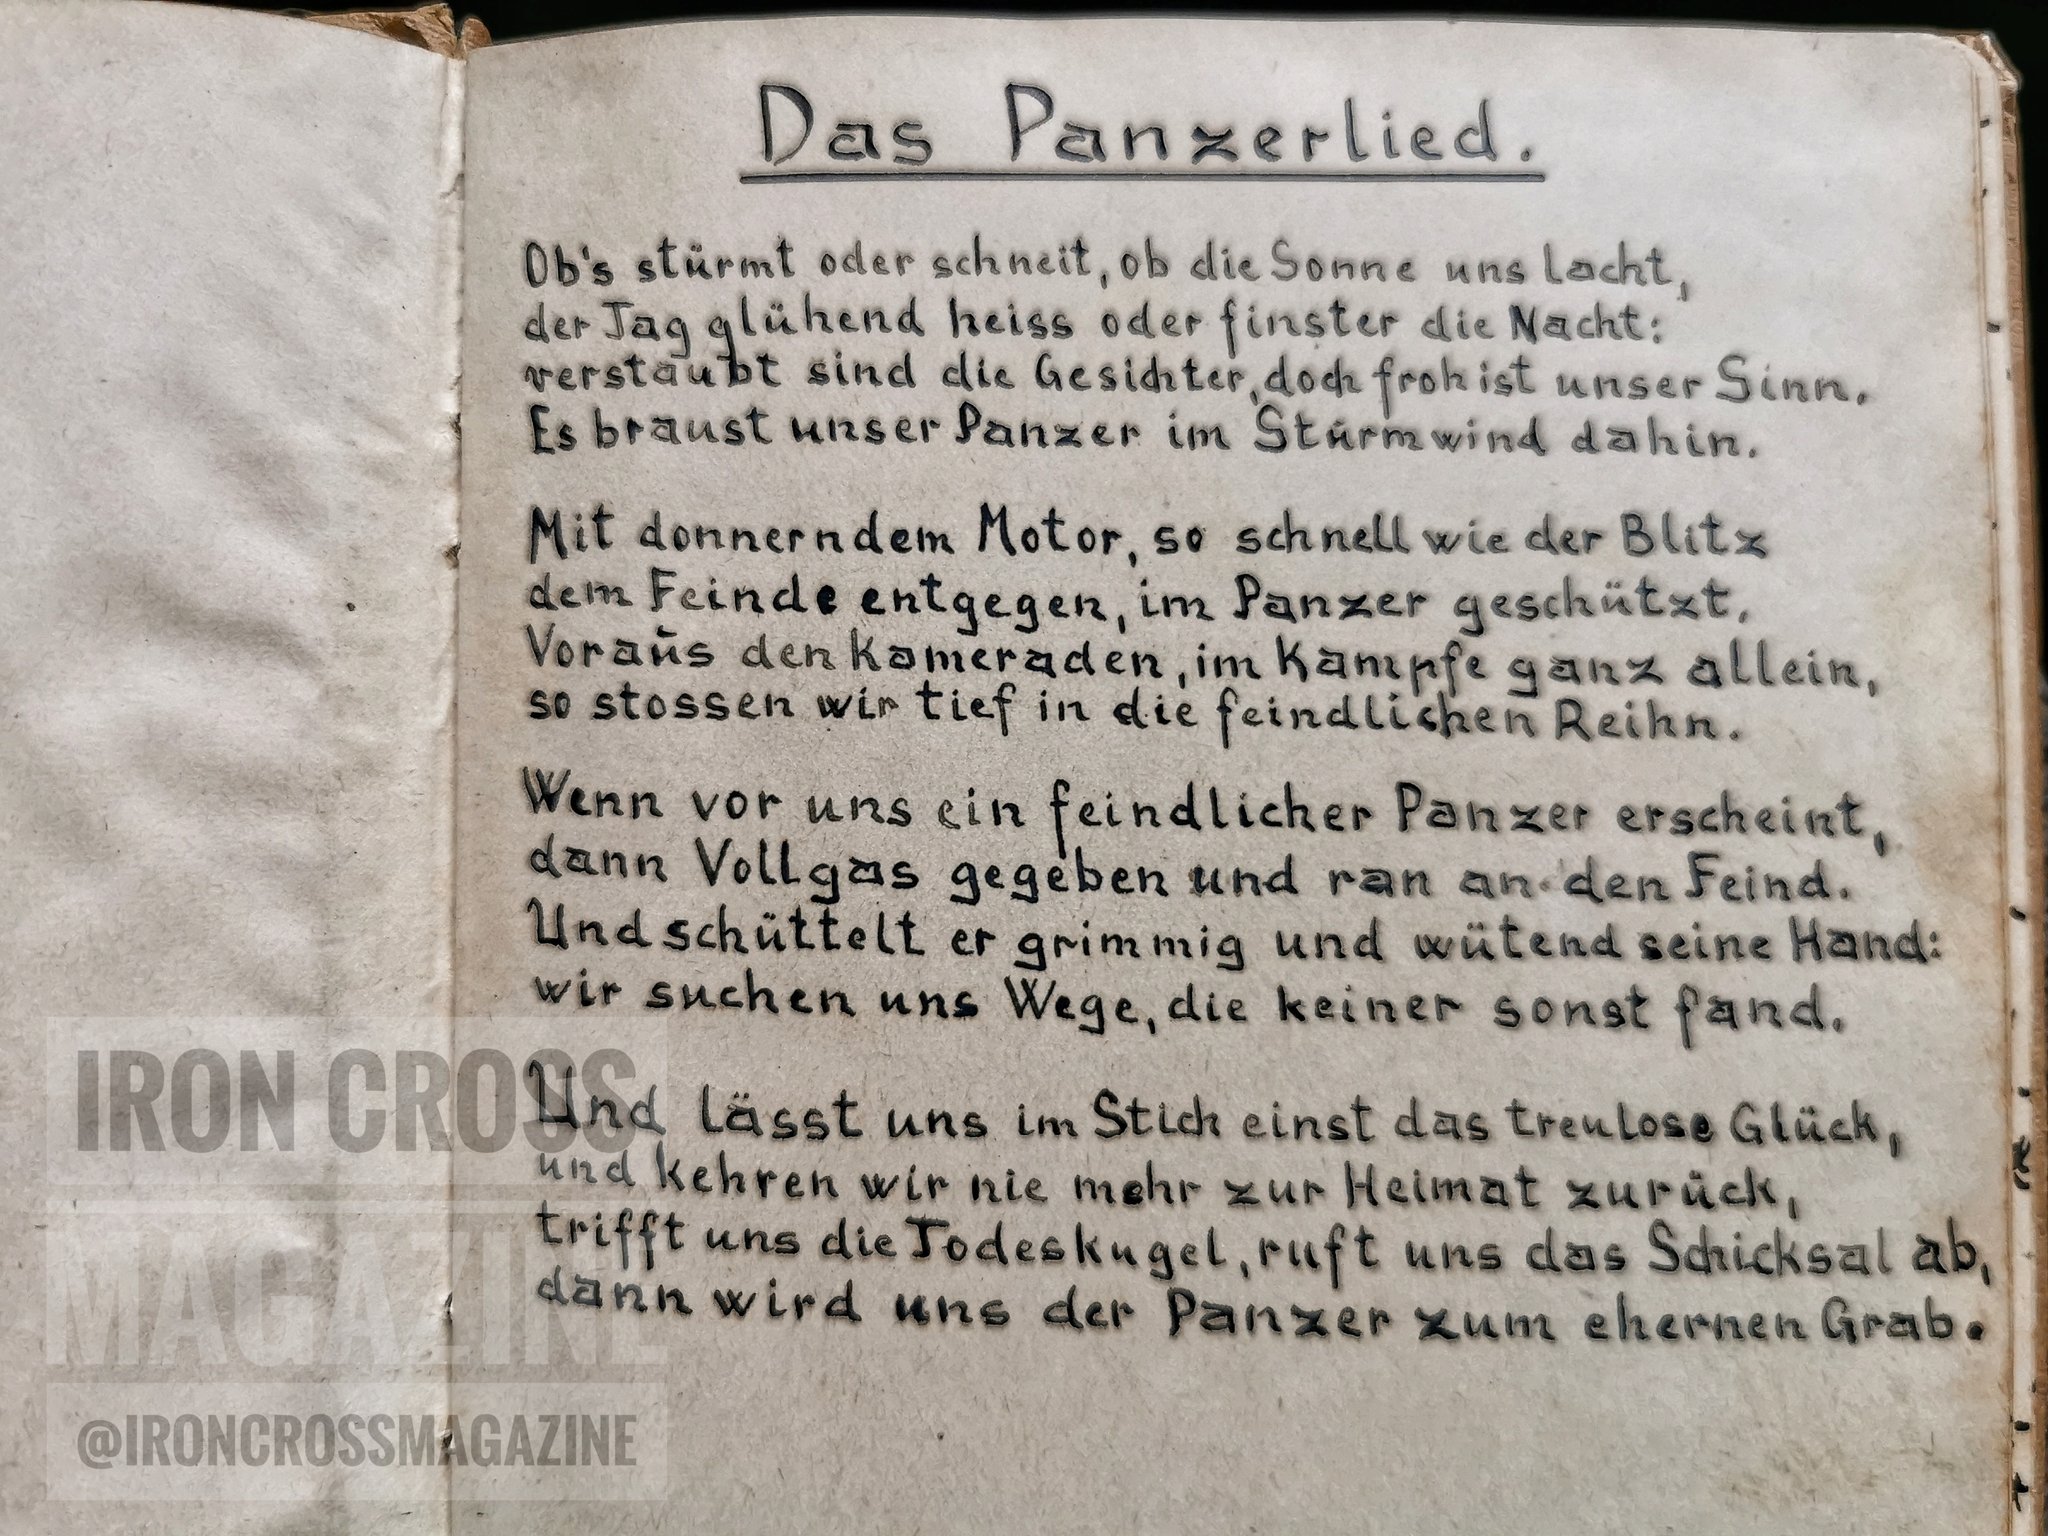 Das Panzerlied.
Ob's stürmt oder schneit, ob die Sonne uns lacht,
der Tag glühend heiss oder finster die Nacht:
verstaubt sind die Gesichter, doch froh ist unser Sinn.
Es braust unser Panzer im Sturmwind dahin.
Mit donnerndem Motor, so schnell wie der Blitz
dem Feinde entgegen, im Panzer geschützt.
Voraus den Kameraden, im Kampfe ganz allein,
so stossen wir tief in die feindlichen Reihn.
Wenn vor uns ein feindlicher Panzer erscheint,
dann Vollgas gegeben und ran an den Feind.
Und schüttelt er grimmig und wütend seine Hand:
wir suchen uns Wege, die keiner sonst fand.
Und lässt uns im Stich einst das treulose Glück,
und kehren wir nie mehr zur Heimat zurück,
trifft uns die Todeskugel, ruft uns das Schicksal ab,
dann wird uns der Panzer zum ehernen Grab.
IRON CROSS
MAGAZINE
@IRONCROSSMAGAZINE